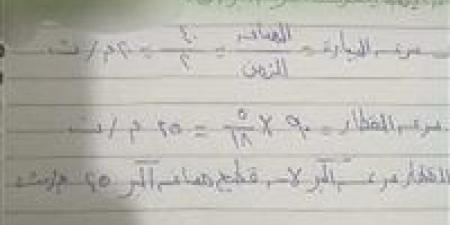 سرعة السيارة = المسافة / الزمن = ٤٠ / ٢ = ٢٠ م / ث
سرعة القطار = ٩٠ × ٥ / ١٨ = ٢٥ م / ث
القطار سرعته أكبر لأنه قطع مسافة أكبر ٢٥ م/ث